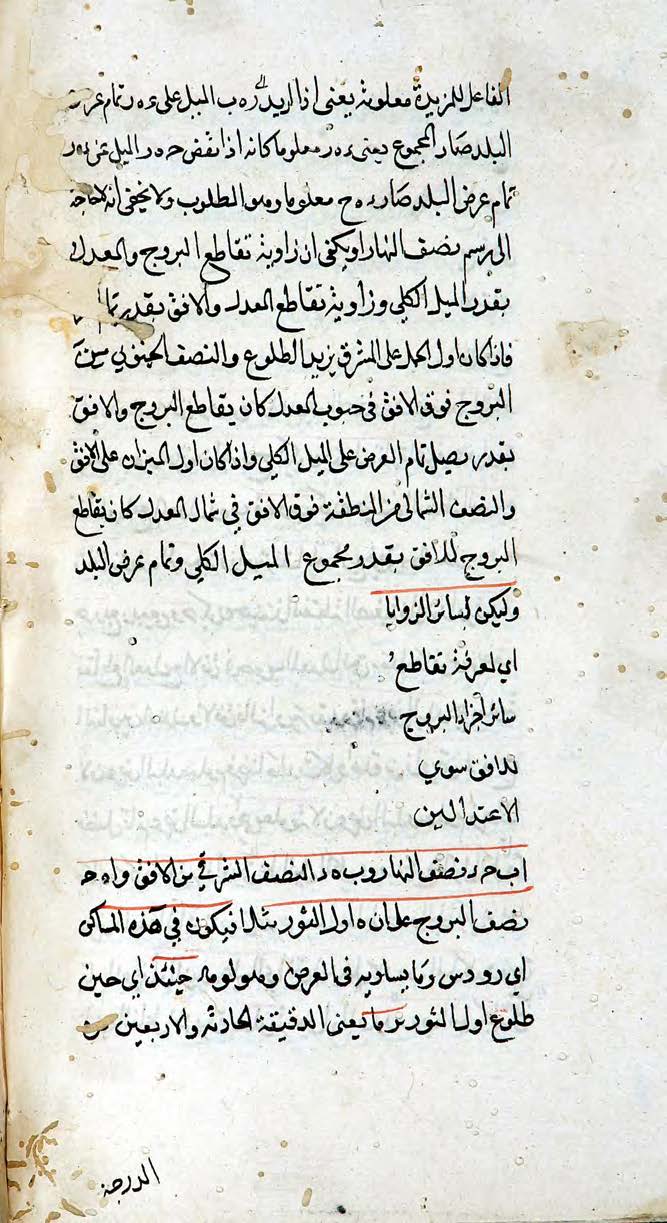 الفاعل للمزيدة معلومة يعنى اذا اريد ب الميل على ه ر تمام عرض
البلد صار المجموع يعنى ه ر معلوما كانه اذا نقض ح ه ر الميل عن ه ر
تمام عرض البلد صار ه ح معلوما وهو المطلوب ولا يخفى انه لا حاجة
الى رسم نصف النهار او يكفى ان زاوية تقاطع البروج والمعدل
بقدر الميل الكلى وزاوية تقاطع المعدل والافق بقدر تمام
فاذا كان اول الحمل على المشرق يريد الطلوع والنصف الجنوبى من
البروج فوق الافق فى جنوب المعدل كان يقاطع البروج والافق
بقدر تمام العرض على الميل الكلى واذا كان اول الميزان على الافق
والنصف الشمالى من المنطقة فوق الافق فى شمال المعدل كان يقاطع
البروج للافق بقدر مجموع الميل الكلى وتمام عرض البلد
وليكن لسائر الزوايا
اى لمعرفة تقاطع
سائر اجزاء البروج
للافق سوى
الاعتدالين
اب ح د نصف النهار و ب ه د النصف الشرقى من الافق و ا ه ح
نصف البروج على ان ه اول الثور مثلا فيكون فى هذه المساكن
اى رودس وما يساويه فى العرض وهو لو مه حينئذ اى حين
طلوع اول الثور ما يعنى الدقيقة الحادثه والاربعين من
الدرجة